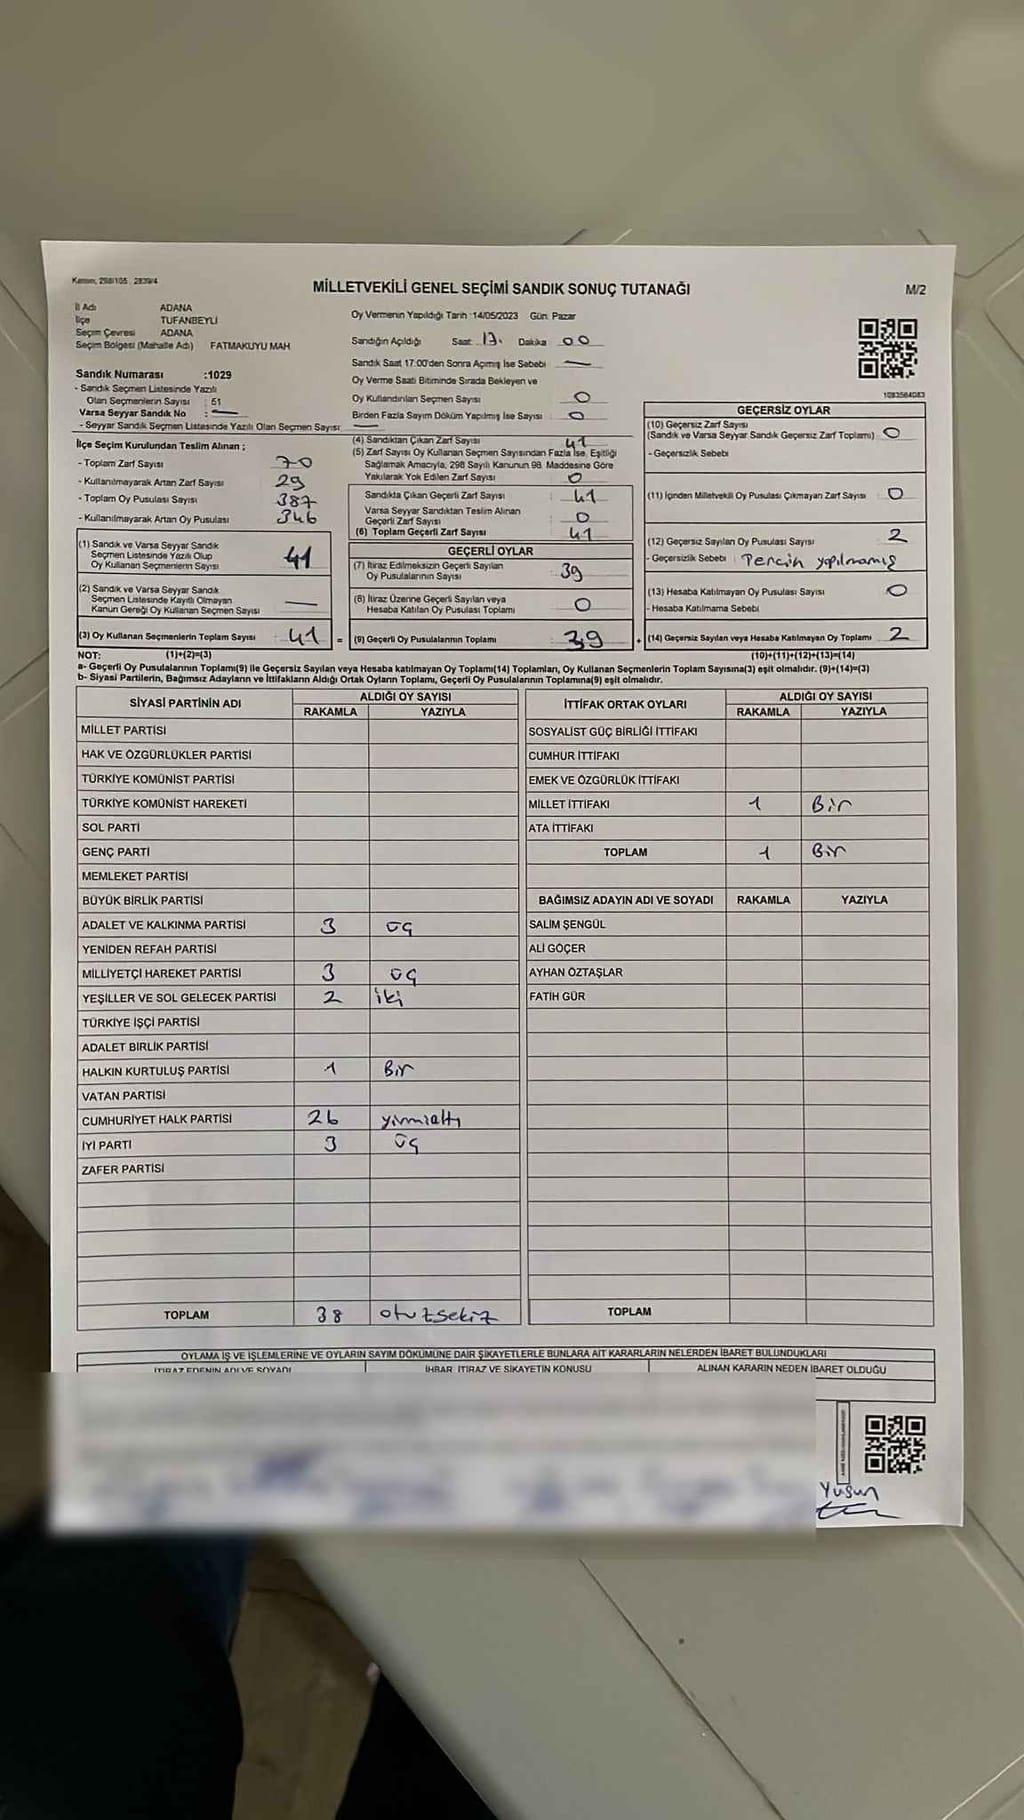 Kanun: 298/105 2839/4
MİLLETVEKİLİ GENEL SEÇİMİ SANDIK SONUÇ TUTANAĞI
M/2
İl Adı ADANA
İlçe TUFANBEYLİ
Seçim Çevresi ADANA
Seçim Bölgesi (Mahalle Adı) FATMAKUYU MAH
Sandık Numarası :1029
- Sandık Seçmen Listesinde Yazılı
Olan Seçmenlerin Sayısı : 51
Varsa Seyyar Sandık No : —
- Seyyar Sandık Seçmen Listesinde Yazılı Olan Seçmen Sayısı : —
Oy Vermenin Yapıldığı Tarih :14/05/2023 Gün: Pazar
Sandığın Açıldığı Saat 17. Dakika 00
Sandık Saat 17:00'den Sonra Açımış İse Sebebi —
Oy Verme Saati Bitiminde Sırada Bekleyen ve
Oy Kullandırılan Seçmen Sayısı 0
Birden Fazla Sayım Döküm Yapılmış İse Sayısı 0
1083564083
İlçe Seçim Kurulundan Teslim Alınan ;
- Toplam Zarf Sayısı 70
- Kullanılmayarak Artan Zarf Sayısı 29
- Toplam Oy Pusulası Sayısı 387
- Kullanılmayarak Artan Oy Pusulası 346
(1) Sandık ve Varsa Seyyar Sandık
Seçmen Listesinde Yazılı Olup
Oy Kullanan Seçmenlerin Sayısı 41
(2) Sandık ve Varsa Seyyar Sandık
Seçmen Listesinde Kayıtlı Olmayan
Kanun Gereği Oy Kullanan Seçmen Sayısı —
(3) Oy Kullanan Seçmenlerin Toplam Sayısı 41 =
(4) Sandıktan Çıkan Zarf Sayısı : 41
(5) Zarf Sayısı Oy Kullanan Seçmen Sayısından Fazla İse, Eşitliği
Sağlamak Amacıyla, 298 Sayılı Kanunun 98. Maddesine Göre
Yakılarak Yok Edilen Zarf Sayısı : 0
Sandıkta Çıkan Geçerli Zarf Sayısı : 41
Varsa Seyyar Sandıktan Teslim Alınan
Geçerli Zarf Sayısı : 0
(6) Toplam Geçerli Zarf Sayısı : 41
GEÇERLİ OYLAR
(7) İtiraz Edilmeksizin Geçerli Sayılan
Oy Pusulalarının Sayısı : 39
(8) İtiraz Üzerine Geçerli Sayılan veya
Hesaba Katılan Oy Pusulası Toplamı : 0
(9) Geçerli Oy Pusulalarının Toplamı : 39 +
GEÇERSİZ OYLAR
(10) Geçersiz Zarf Sayısı
(Sandık ve Varsa Seyyar Sandık Geçersiz Zarf Toplamı) 0
- Geçersizlik Sebebi
(11) İçinden Milletvekili Oy Pusulası Çıkmayan Zarf Sayısı : 0
(12) Geçersiz Sayılan Oy Pusulası Sayısı : 2
- Geçersizlik Sebebi : Percin yapılmamış
(13) Hesaba Katılmayan Oy Pusulası Sayısı : 0
- Hesaba Katılmama Sebebi
(14) Geçersiz Sayılan veya Hesaba Katılmayan Oy Toplamı : 2
NOT: (1)+(2)=(3) (10)+(11)+(12)+(13)=(14)
a- Geçerli Oy Pusulalarının Toplamı(9) ile Geçersiz Sayılan veya Hesaba katılmayan Oy Toplamı(14) Toplamları, Oy Kullanan Seçmenlerin Toplam Sayısına(3) eşit olmalıdır. (9)+(14)=(3)
b- Siyasi Partilerin, Bağımsız Adayların ve İttifakların Aldığı Ortak Oyların Toplamı, Geçerli Oy Pusulalarının Toplamına(9) eşit olmalıdır.
SİYASİ PARTİNİN ADI ALDIĞI OY SAYISI
RAKAMLA YAZIYLA
MİLLET PARTİSİ
HAK VE ÖZGÜRLÜKLER PARTİSİ
TÜRKİYE KOMÜNİST PARTİSİ
TÜRKİYE KOMÜNİST HAREKETİ
SOL PARTİ
GENÇ PARTİ
MEMLEKET PARTİSİ
BÜYÜK BİRLİK PARTİSİ
ADALET VE KALKINMA PARTİSİ 3 üç
YENİDEN REFAH PARTİSİ
MİLLİYETÇİ HAREKET PARTİSİ 3 üç
YEŞİLLER VE SOL GELECEK PARTİSİ 2 iki
TÜRKİYE İŞÇİ PARTİSİ
ADALET BİRLİK PARTİSİ
HALKIN KURTULUŞ PARTİSİ 1 Bir
VATAN PARTİSİ
CUMHURİYET HALK PARTİSİ 26 yirmialtı
İYİ PARTİ 3 üç
ZAFER PARTİSİ
TOPLAM 38 otuzsekiz
İTTİFAK ORTAK OYLARI ALDIĞI OY SAYISI
RAKAMLA YAZIYLA
SOSYALİST GÜÇ BİRLİĞİ İTTİFAKI
CUMHUR İTTİFAKI
EMEK VE ÖZGÜRLÜK İTTİFAKI
MİLLET İTTİFAKI 1 Bir
ATA İTTİFAKI
TOPLAM 1 Bir
BAĞIMSIZ ADAYIN ADI VE SOYADI RAKAMLA YAZIYLA
SALİM ŞENGÜL
ALİ GÖÇER
AYHAN ÖZTAŞLAR
FATİH GÜR
TOPLAM
OYLAMA İŞ VE İŞLEMLERİNE VE OYLARIN SAYIM DÖKÜMÜNE DAİR ŞİKAYETLERLE BUNLARA AİT KARARLARIN NELERDEN İBARET BULUNDUKLARI
İTİRAZ EDENİN ADI VE SOYADI İHBAR, İTİRAZ VE ŞİKAYETİN KONUSU ALINAN KARARIN NEDEN İBARET OLDUĞU